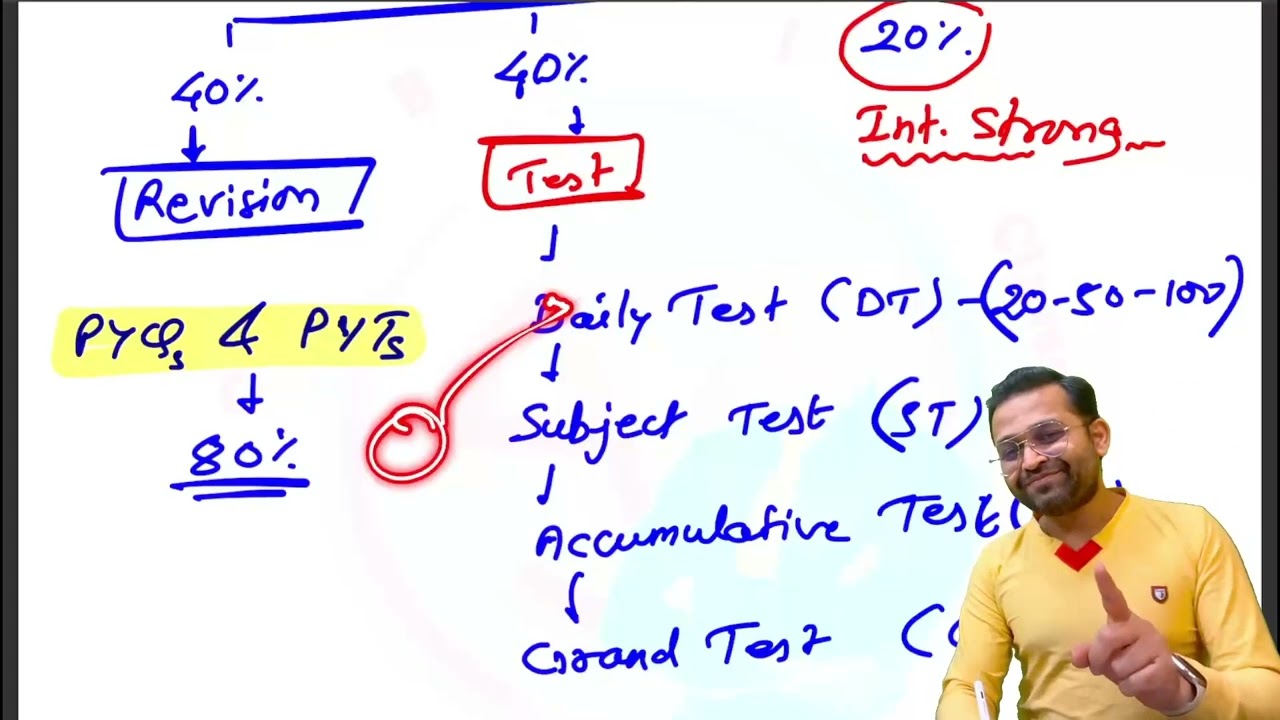 40% 40% 20%
Int. Strong
Revision Test
Daily Test (DT) - (20-50-100)
PYQs & PYTs
80%
Subject Test (ST)
Accumulative Test (
Grand Test (